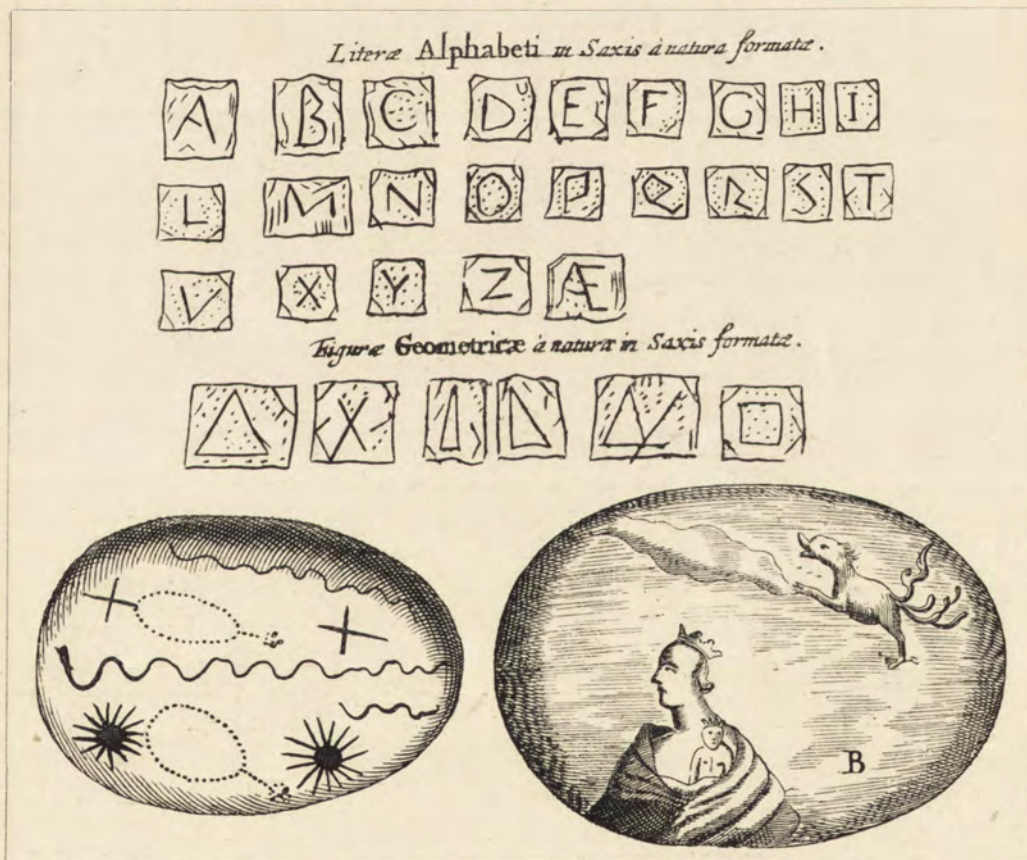 Literæ Alphabeti in Saxis à natura formatæ.
A B C D E F G H I
L M N O P Q R S T
V X Y Z Æ
Figuræ Geometricæ à naturæ in Saxis formatæ.
B